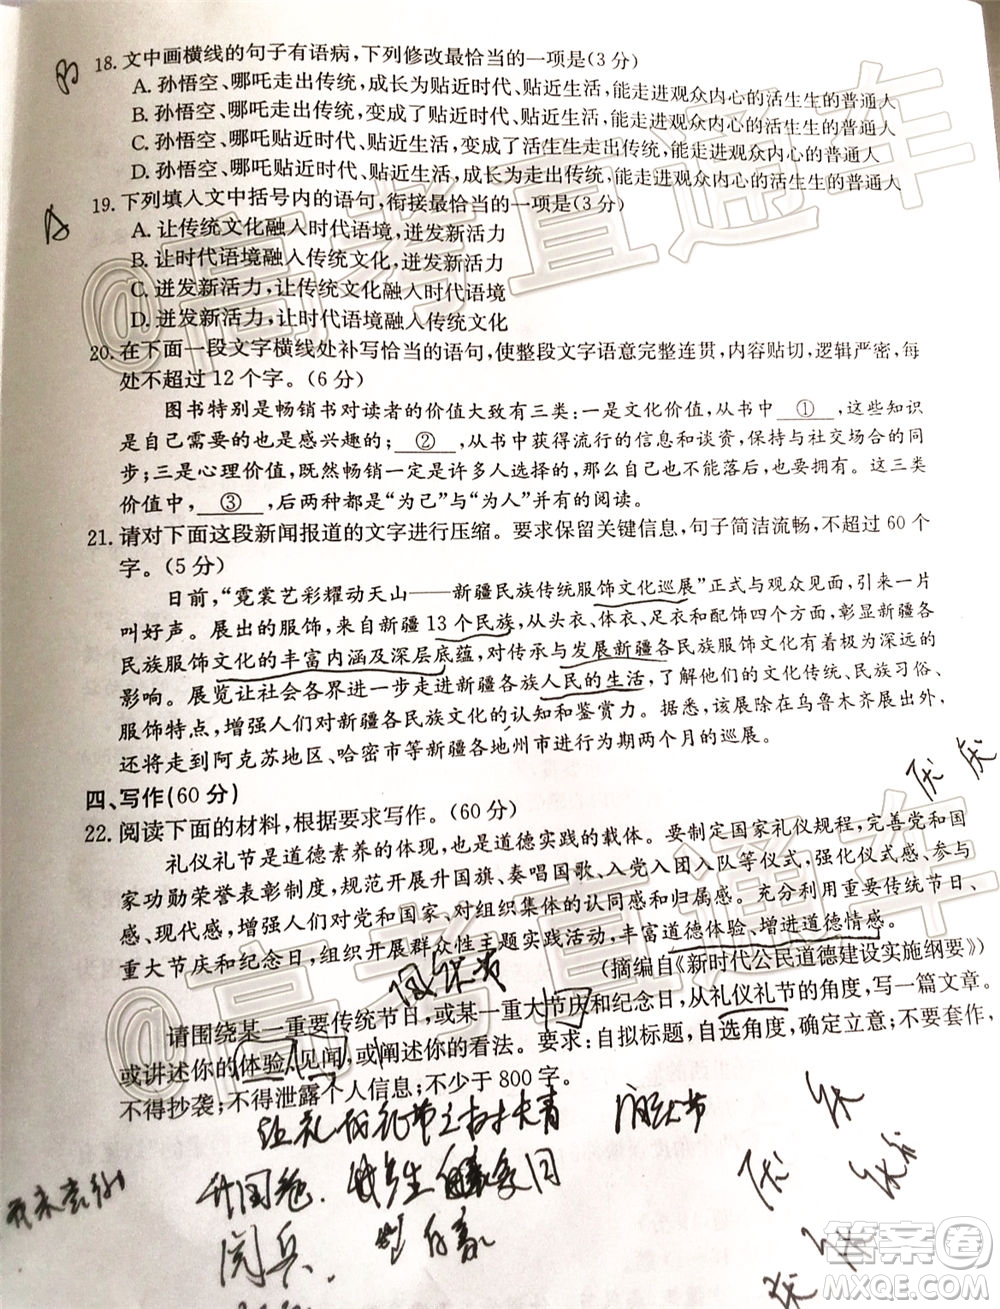 18. 文中画横线的句子有语病,下列修改最恰当的一项是(3分)
A. 孙悟空、哪吒走出传统,成长为贴近时代、贴近生活,能走进观众内心的活生生的普通人
B. 孙悟空、哪吒走出传统,变成了贴近时代、贴近生活,能走进观众内心的活生生的普通人
C. 孙悟空、哪吒贴近时代、贴近生活,变成了活生生的传统,能走进观众内心的普通人
D. 孙悟空、哪吒贴近时代、贴近生活,成长为走出传统,能走进观众内心的活生生的普通人
19. 下列填入文中括号内的语句,衔接最恰当的一项是(3分)
A. 让传统文化融入时代语境,迸发新活力
B. 让时代语境融入传统文化,迸发新活力
C. 迸发新活力,让传统文化融入时代语境
D. 迸发新活力,让时代语境融入传统文化
20. 在下面一段文字横线处补写恰当的语句,使整段文字语意完整连贯,内容贴切,逻辑严密,每
处不超过12个字。(6分)
图书特别是畅销书对读者的价值大致有三类:一是文化价值,从书中 ① ,这些知识
是自己需要的也是感兴趣的; ② ,从书中获得流行的信息和谈资,保持与社交场合的同
步;三是心理价值,既然畅销一定是许多人选择的,那么自己也不能落后,也要拥有。这三类
价值中, ③ ,后两种都称不上“为己”与“为人”并有的阅读。
21. 请对下面这段新闻报道的文字进行压缩。要求保留关键信息,句子简洁流畅,不超过60个
字。(5分)
日前,“霓裳艺彩耀动天山——新疆民族传统服饰文化巡展”正式与观众见面,引来一片
叫好声。展出的服饰,来自新疆13个民族,从头衣、体衣、足衣和配饰四个方面,彰显新疆各
民族服饰文化的丰富内涵及深层底蕴,对传承与发展新疆各民族传统文化有着极为深远的
影响。展览让社会各界进一步走进新疆各族人民的生活,了解他们的历史文化、民族习俗、
服饰特点,增强人们对新疆各民族文化的认知和鉴赏力。据悉,该展除在乌鲁木齐展出外,
还将走到阿克苏地区、哈密市等新疆各地州市进行为期两个月的巡展。
四、写作(60分)
22. 阅读下面的材料,根据要求写作。(60分)
礼仪礼节是道德素养的体现,也是道德实践的载体。要制定国家礼仪规程,完善党和国
家功勋荣誉表彰制度,规范开展升国旗、奏唱国歌、入党入团入队等仪式,强化仪式感、参与
感、现代感,增强人们对党和国家、对组织集体的认同感和归属感。充分利用重要传统节日、
重大节庆和纪念日,组织开展群众性主题实践活动,丰富道德体验、增进道德情感。
(摘编自《新时代公民道德建设实施纲要》)
请围绕某一重要传统节日,或某一重大节庆和纪念日,从礼仪礼节的角度,写一篇文章。
或讲述你的体验、见闻,或阐述你的看法。要求:自拟标题,自选角度,确定立意;不要套作,
不得抄袭;不得泄露个人信息;不少于800字。
@高考直通车
@高考直通车
答案圈
MXQE.COM